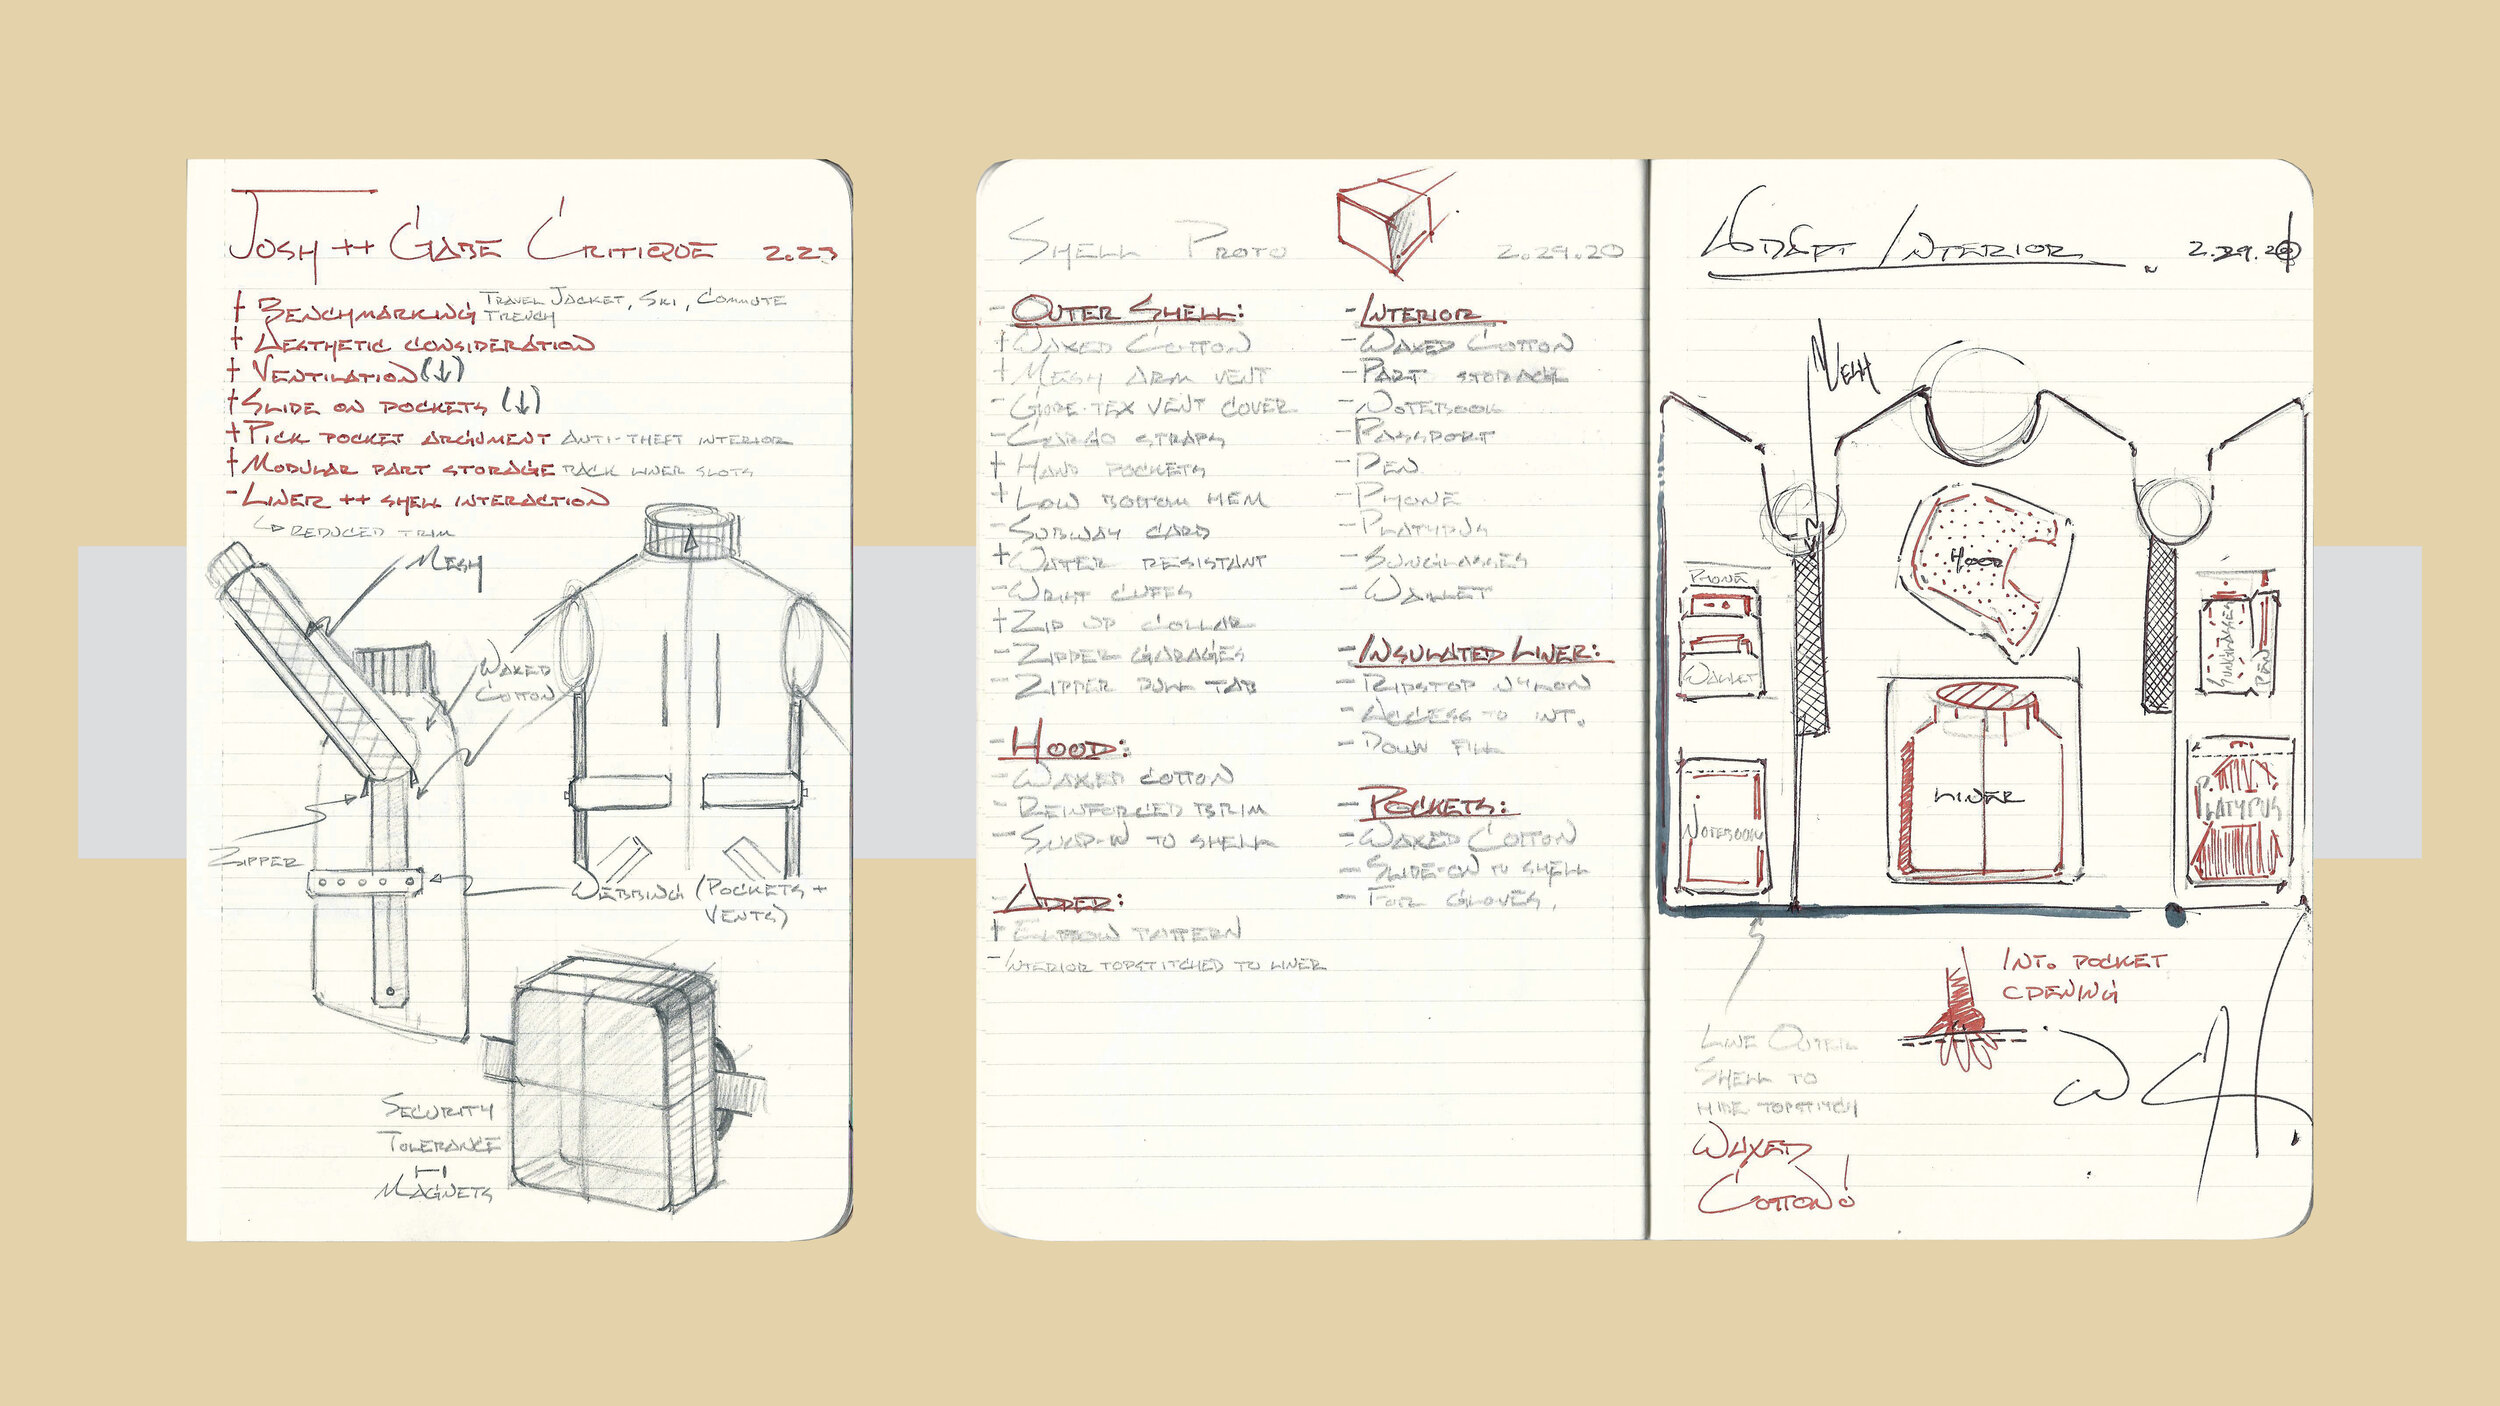 JOSH ++ GABE CRITIQUE 2.23
+ BENCHMARKING TRAVEL JACKET, SKI, COMMUTE
TRENCH
+ AESTHETIC CONSIDERATION
+ VENTILATION (↓)
+ SLIDE ON POCKETS (↓)
+ PICK POCKET ARGUMENT ANTI-THEFT INTERIOR
+ MODULAR PART STORAGE PACK LINER SLOTS
- LINER ++ SHELL INTERACTION
↳ REDUCED TRIM
MESH
WAXED
COTTON
ZIPPER
WEBBING (POCKETS +
VENTS)
SECURITY
TOLERANCE
MAGNETS
SHELL PROTO 2.29.20
- OUTER SHELL:
+ WAXED COTTON
+ MESH ARM VENT
- GORE-TEX VENT COVER
- CARGO STRAPS
+ HAND POCKETS
+ LOW BOTTOM HEM
- SUBWAY CARD
+ WATER RESISTANT
- WRIST CUFFS
+ ZIP UP COLLAR
- ZIPPER GARAGES
- ZIPPER PULL TAB
- HOOD:
- WAXED COTTON
- REINFORCED BRIM
- SNAP-IN TO SHELL
- ADDED:
+ ELBOW PATTERN
- INTERIOR TOPSTITCHED TO LINER
- INTERIOR
- WAXED COTTON
- PART STORAGE
- NOTEBOOK
- PASSPORT
- PEN
- PHONE
- PLATYPUS
- SUNGLASSES
- WALLET
- INSULATED LINER:
- RIPSTOP NYLON
- ACCESS TO INT.
- DOWN FILL
- POCKETS:
- WAXED COTTON
- SLIDE-ON TO SHELL
- FOR GLOVES,
INTERIOR 2.29.20
MESH
HOOD
PHONE
WALLET
SUNGLASSES
PEN
NOTEBOOK
LINER
PLATYPUS
INT. POCKET
OPENING
LINE OUTER
SHELL TO
HIDE TOPSTITCH
WAXED
COTTON!